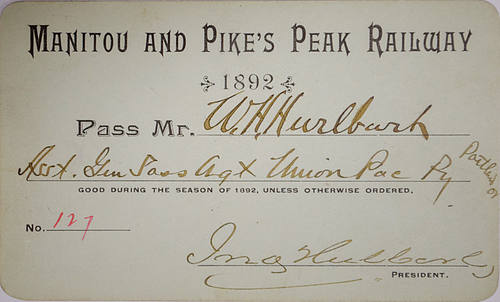 MANITOU AND PIKE'S PEAK RAILWAY
1892
Pass Mr. W.H. Hurlburt
Asst. Gen Pass Agt Union Pac Ry
Portland Or
GOOD DURING THE SEASON OF 1892, UNLESS OTHERWISE ORDERED.
No. 127
Jno Hulbert
PRESIDENT.